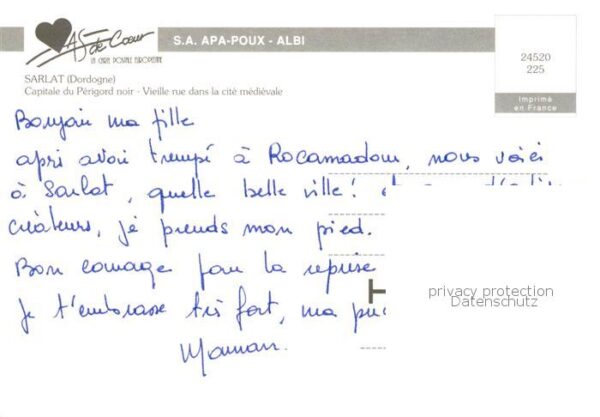 AS de Cœur
LA CARTE POSTALE EUROPEENNE
S.A. APA-POUX - ALBI
24520
225
Imprimé
en France
SARLAT (Dordogne)
Capitale du Périgord noir - Vieille rue dans la cité médiévale
Bonjour ma fille
apri avoir trempé à Rocamadour, nous voici
à Sarlat, quelle belle ville!
créateurs, je prends mon pied.
Bon courage pour la reprise
je t'embrasse très fort, ma
Maman.
privacy protection
Datenschutz